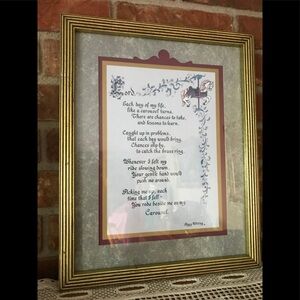 Lord,
Each day of my life,
like a carousel turns.
There are chances to take,
and lessons to learn.
Caught up in problems,
that each day would bring.
Chances slip by,
to catch the brass ring.
Whenever I felt my
ride slowing down.
Your gentle hand would
push me around.
Picking me up, each
time that I fell -
You rode beside me on my
Carousel.